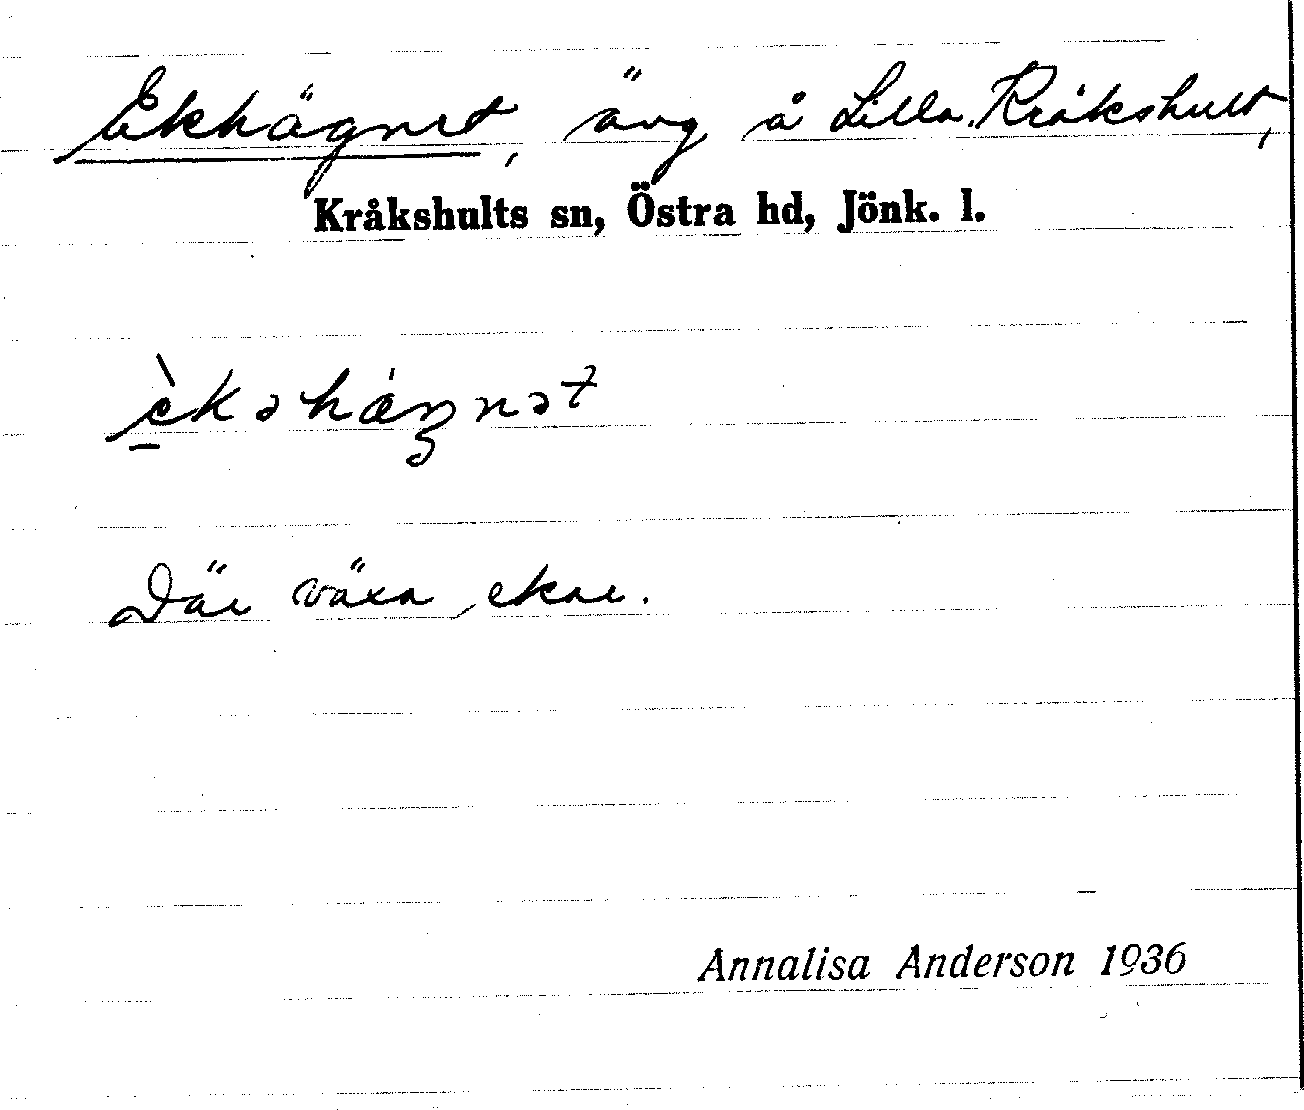 Ekhägnet, äng å Lilla Kråkshult,
Kråkshults sn, Östra hd, Jönk. l.
è̠kəháŋnət
Där växa ekar.
Annalisa Anderson 1936